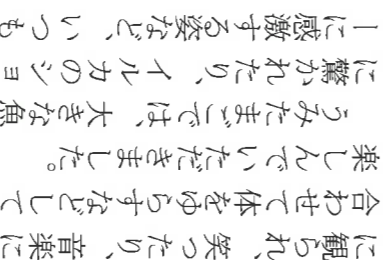 に観られ、笑ったり、音楽に
合わせて体をゆらすなどして
楽しんでいただきました。
うみたまごでは、大きな魚
に驚かれたり、イルカのショ
ーに感激する姿など、いつも